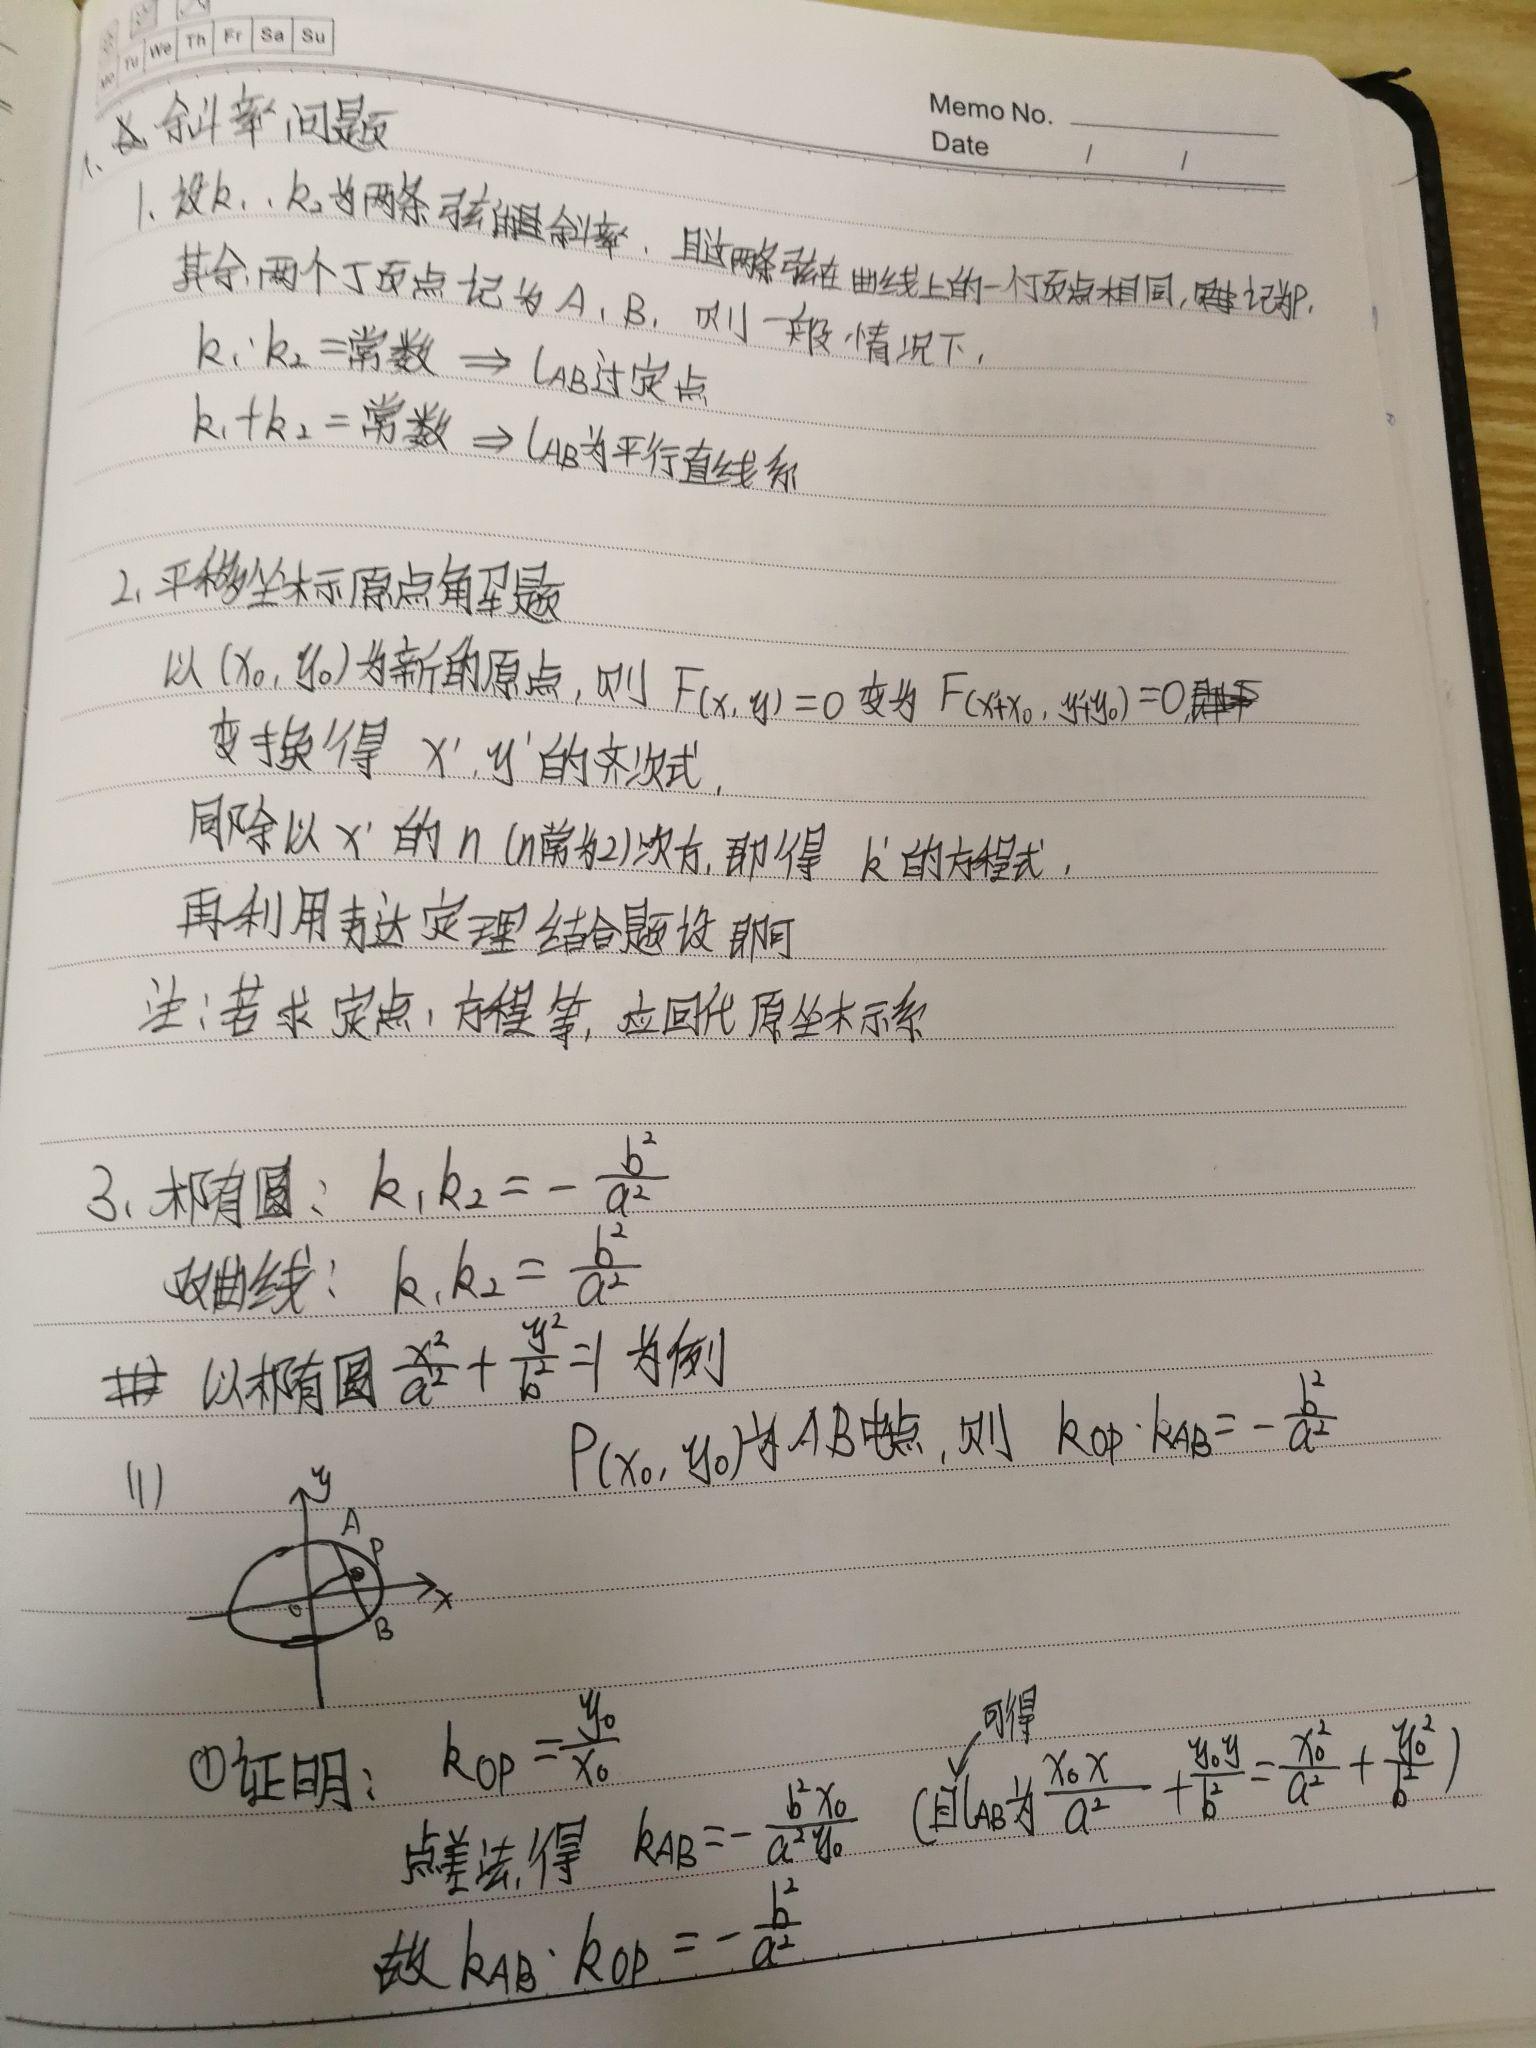 Mo Tu We Th Fr Sa Su
Memo No.
Date / /
1. 斜率问题
1. 设k₁、k₂为两条弦的斜率，且这两条弦在曲线上的一个顶点相同，记为P，
其余两个顶点记为A、B，则一般情况下，
k₁·k₂=常数 ⇒ l_AB过定点
k₁+k₂=常数 ⇒ l_AB为平行直线系
2. 平移坐标原点解题
以(x₀, y₀)为新的原点，则 F(x, y)=0 变为 F(x'+x₀, y'+y₀)=0,
变换得 x', y'的齐次式，
同除以x'的n(n常为2)次方，即得 k'的方程式，
再利用韦达定理结合题设即可
注：若求定点、方程等，应回代原坐标系
3. 椭圆： k₁k₂ = -b²/a²
双曲线： k₁k₂ = b²/a²
以椭圆 x²/a² + y²/b² = 1 为例
P(x₀, y₀)为AB中点，则 k_OP·k_AB = -b²/a²
(1)
y
A
P
O
x
B
可得
①证明： k_OP = y₀/x₀
点差法，得 k_AB = -b²x₀/a²y₀ (且l_AB为 x₀x/a² + y₀y/b² = x₀²/a² + y₀²/b²)
故 k_AB·k_OP = -b²/a²